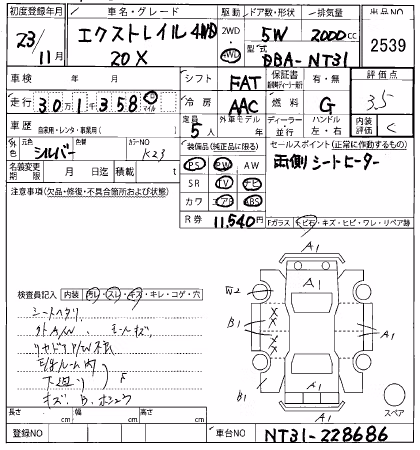 初度登録年月 車名・グレード 駆動 ドア数・形状 排気量 出品NO
23/11月 エクストレイル 4WD 20X 2WD 4WD 5W 2000cc 2539
型式 DBA-NT31
車検 年 月 シフト FAT 保証書 有・無 評価点 3.5
走行 30万1千358 km マイル 冷房 AAC 燃料 G
車歴 自家用・レンタ・事業用( ) 定員 5人 外車モデル 年 ディーラー 並行 ハンドル 左・右 内装評価 C
外色 元色 シルバー 色替 カラーNO K23
装備品(純正品に限る) セールスポイント(正常に作動するもの)
名義変更期限 月 日迄 積載 t PS PW AW 両側シートヒーター
注意事項(欠品・修復・不具合箇所および状態) SR TV ナビ
カワ エアB ABS
R券 11,540円 Fガラス トビ石・キズ・ヒビ・ワレ・リペア跡
検査員記入 内装 汚レ・スレ・キズ・キレ・コゲ・穴
シートヘタリ
下廻り
F
キズ B.
A1
A1
W2
B1
B1
A1
A1
A1
A1
スペア
長さ cm 幅 cm 高さ cm
登録NO 車台NO NT31-228686